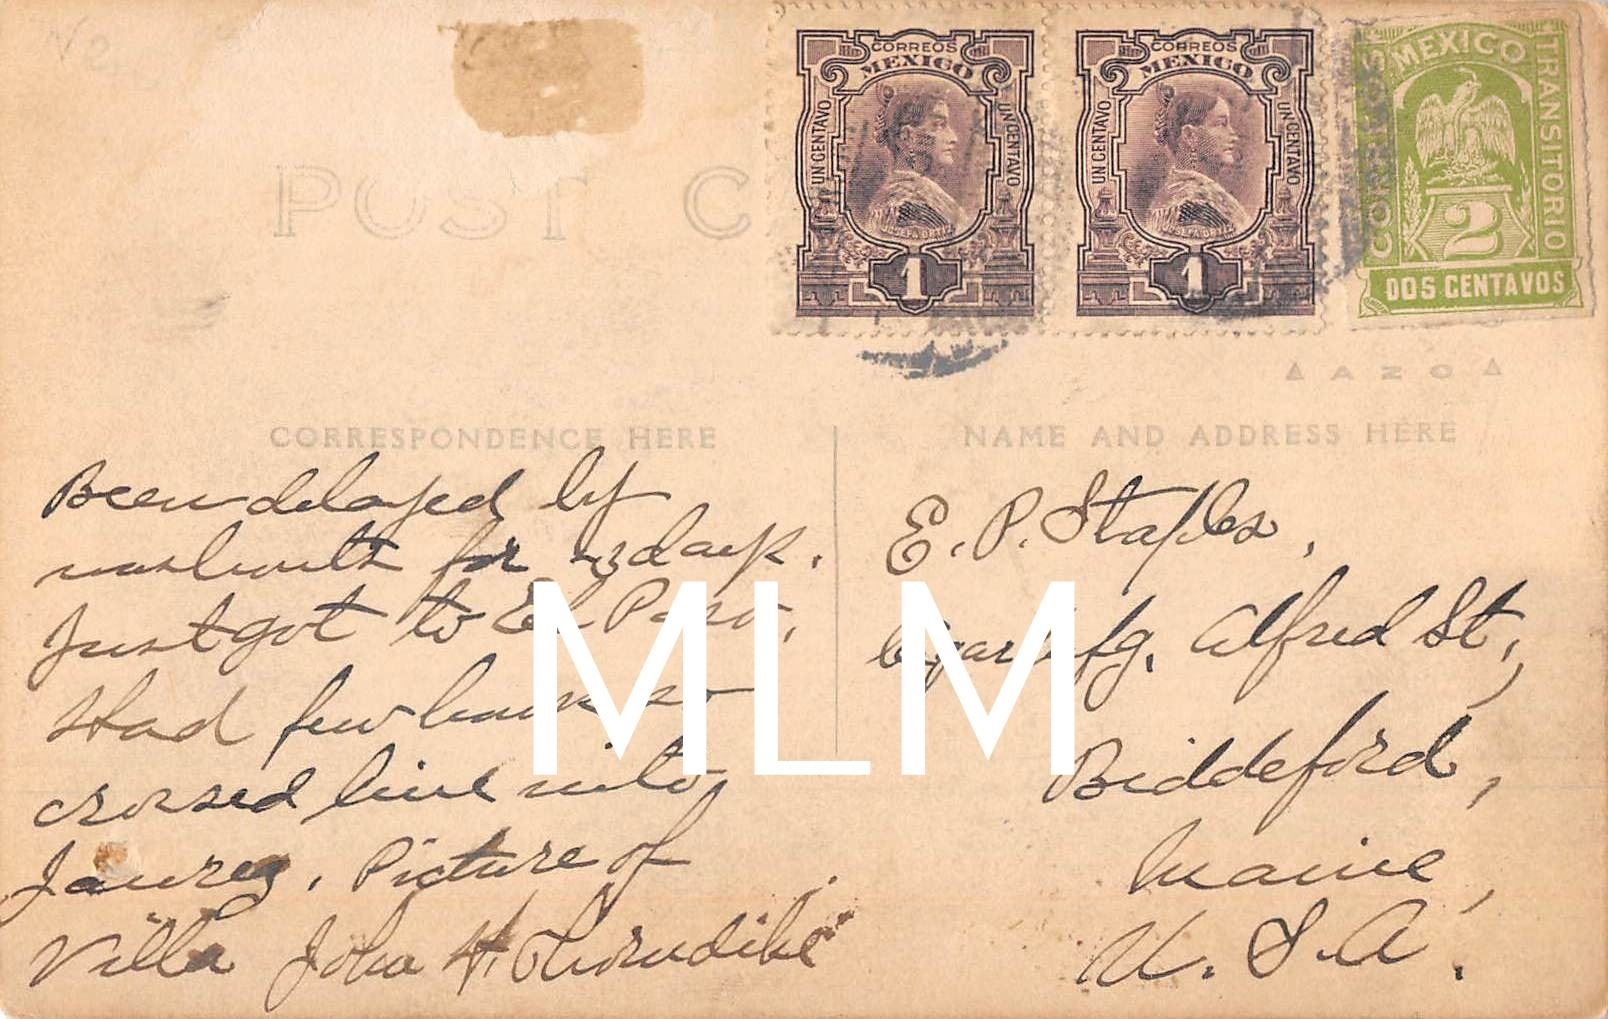 POST C
CORREOS
MEXICO
UN CENTAVO
UN CENTAVO
JOSEFA ORTIZ
1
CORREOS
MEXICO
UN CENTAVO
UN CENTAVO
JOSEFA ORTIZ
1
MEXICO
CORREOS
TRANSITORIO
2
DOS CENTAVOS
AZO
CORRESPONDENCE HERE
NAME AND ADDRESS HERE
Been delayed by
washouts for days.
Just got to El Paso,
Had few hours so
crossed line into
Jaurez. Picture of
"Villa" John H. Thorndike
E. P. Staples,
Cigar Mfg, Alfred St,
Biddeford,
Maine,
U. S. A.
MLM